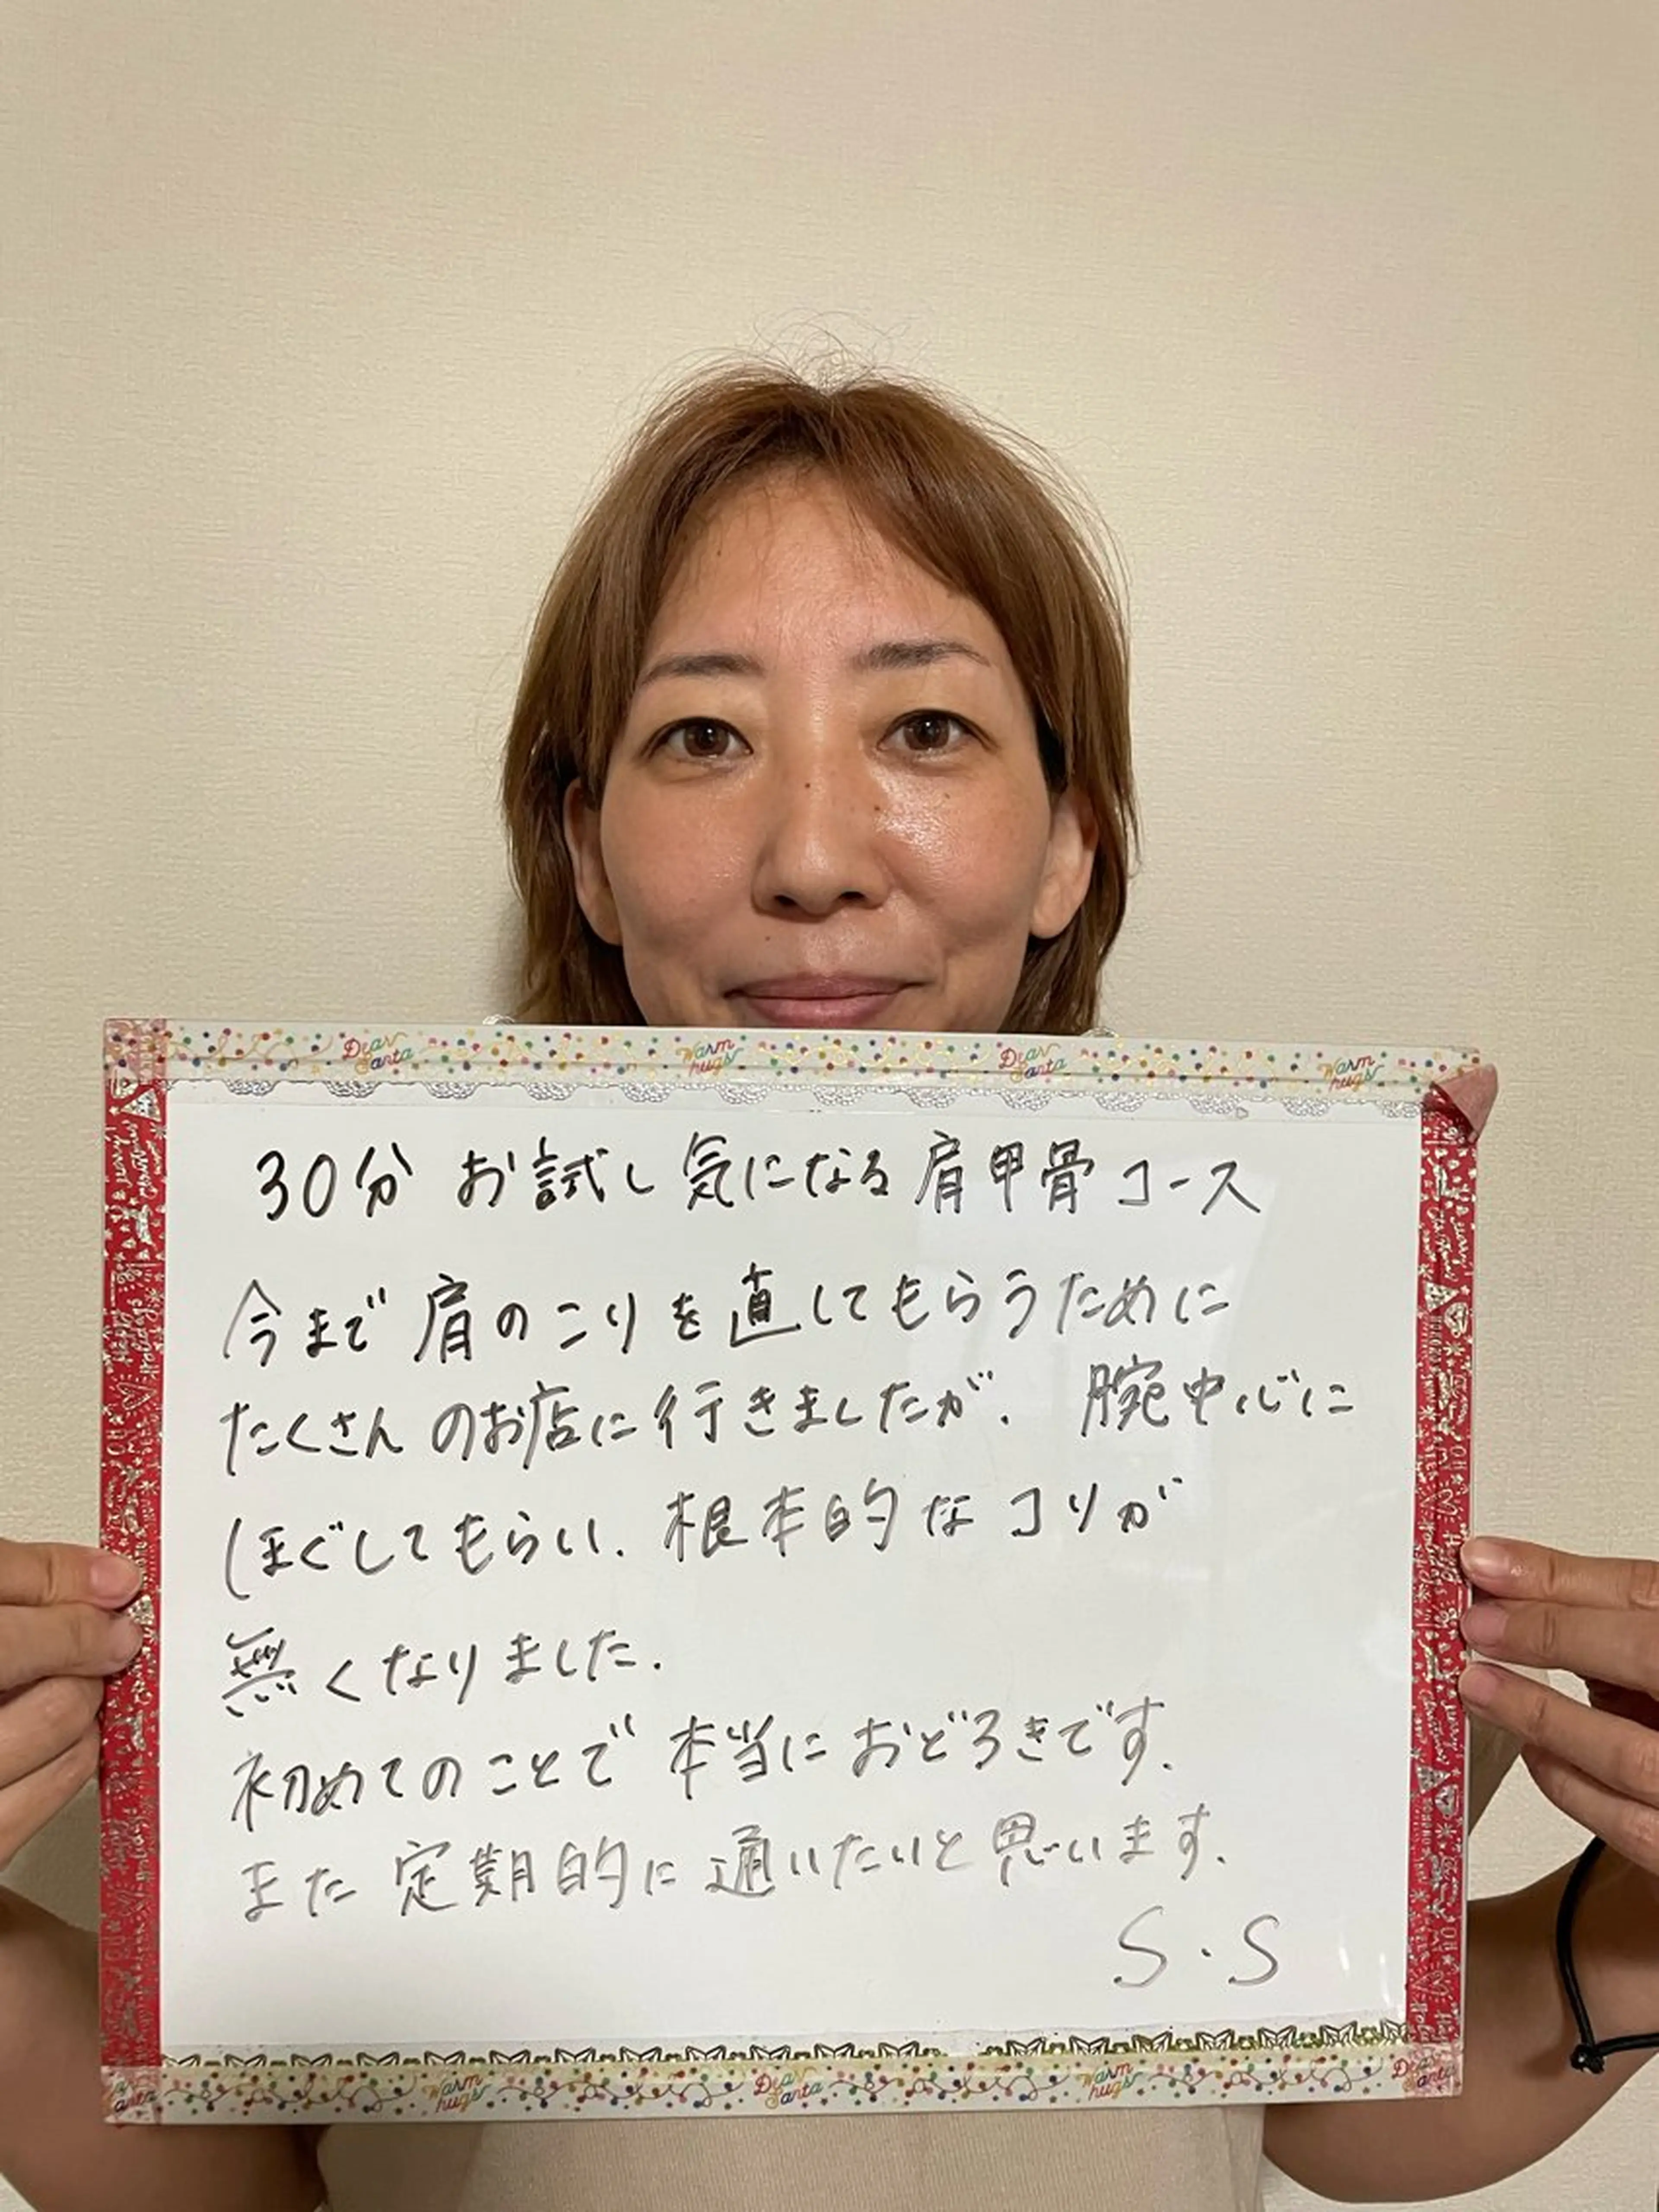 Dear Santa Warm hugs Dear Santa Warm hugs
30分 お試し 気になる 肩甲骨コース
今まで 肩のこりを直してもらうために
たくさんのお店に行きましたが、腕中心に
ほぐしてもらい、根本的なコリが
無くなりました。
初めてのことで 本当におどろきです。
また 定期的に通いたいと思います。
S・S
Warm hugs Dear Santa Warm hugs Dear Santa